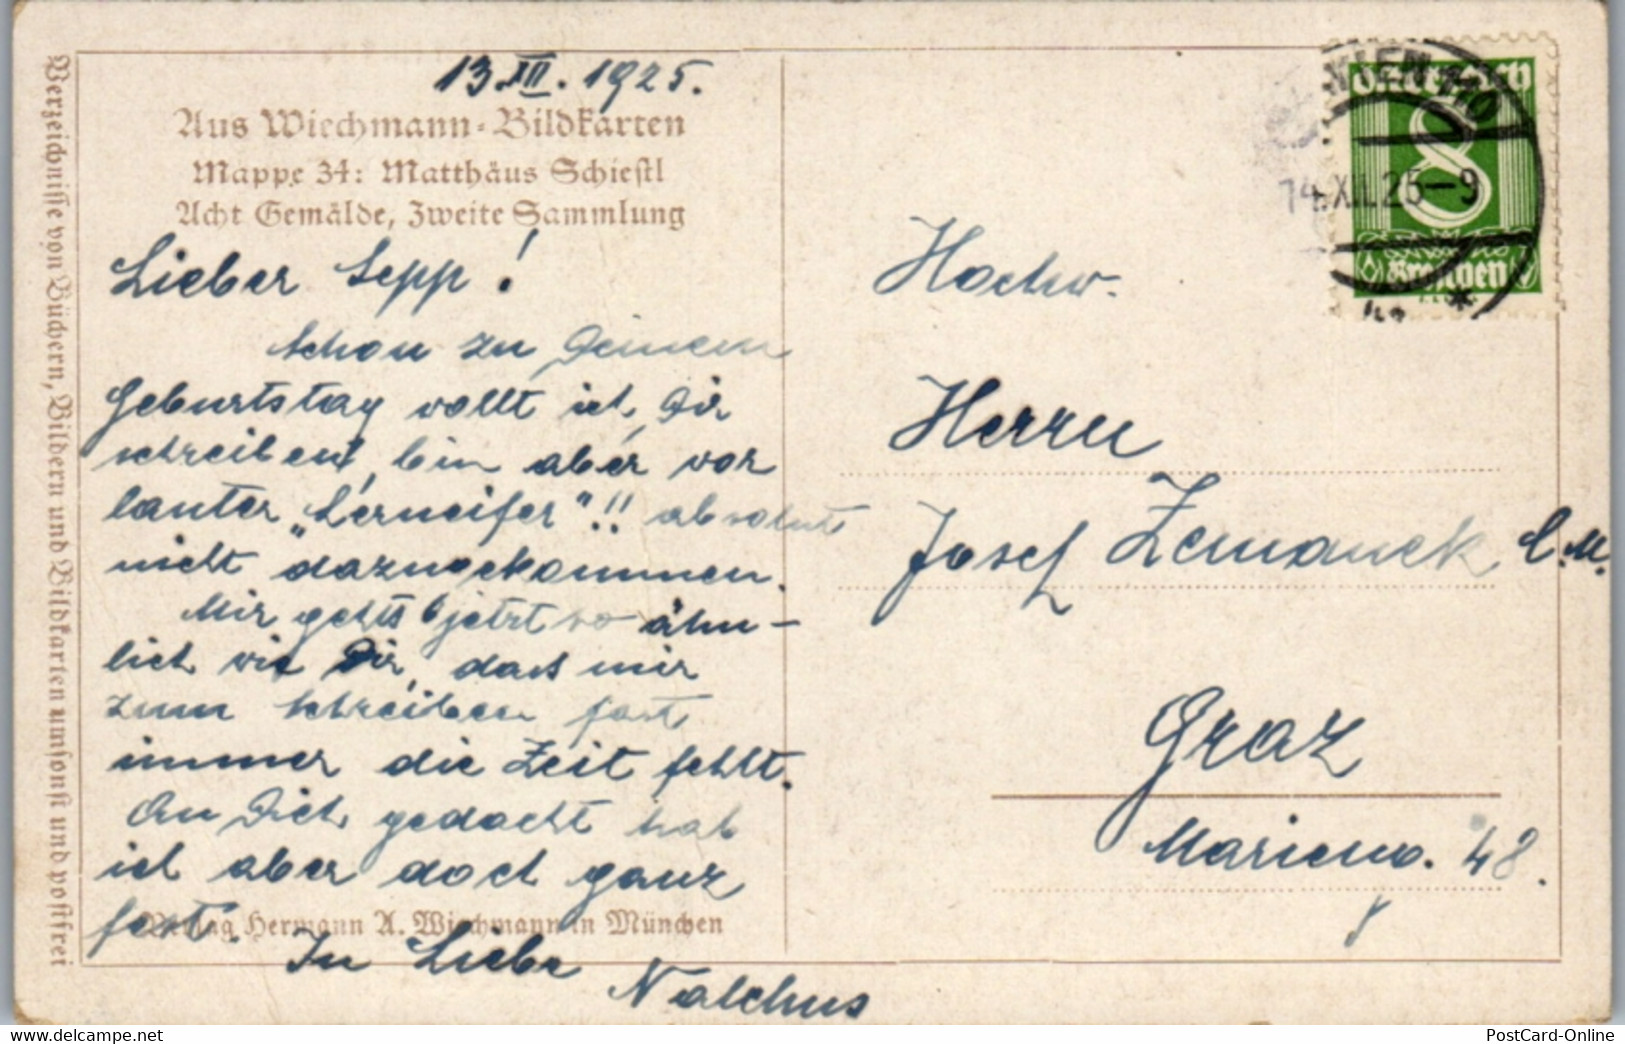 13.XII.1925.
Aus Wiechmann-Bildkarten
Mappe 34: Matthäus Schiestl
Acht Gemälde, Zweite Sammlung
Lieber Sepp!
Schon zu Deinem
Geburtstag wollt ich Dir
schreiben, bin aber vor
lauter „Lerneifer"!! absolut
nicht dazugekommen.
Mir geht's jetzt so ähn-
lich wie Dir, dass mir
zum Schreiben fast
immer die Zeit fehlt.
An Dich gedacht hab
ich aber doch ganz
fest.
Verlag Hermann A. Wiechmann in München
In Liebe
Verzeichnisse von Büchern, Bildern und Bildkarten umsonst und postfrei
WIEN 110
14.XII.25-9
Österreich
8
Kronen
Hochw.
Herrn
Josef Zemanek C.M.
Graz
Marieng. 48.
PostCard-Online
https://www.delcampe.net